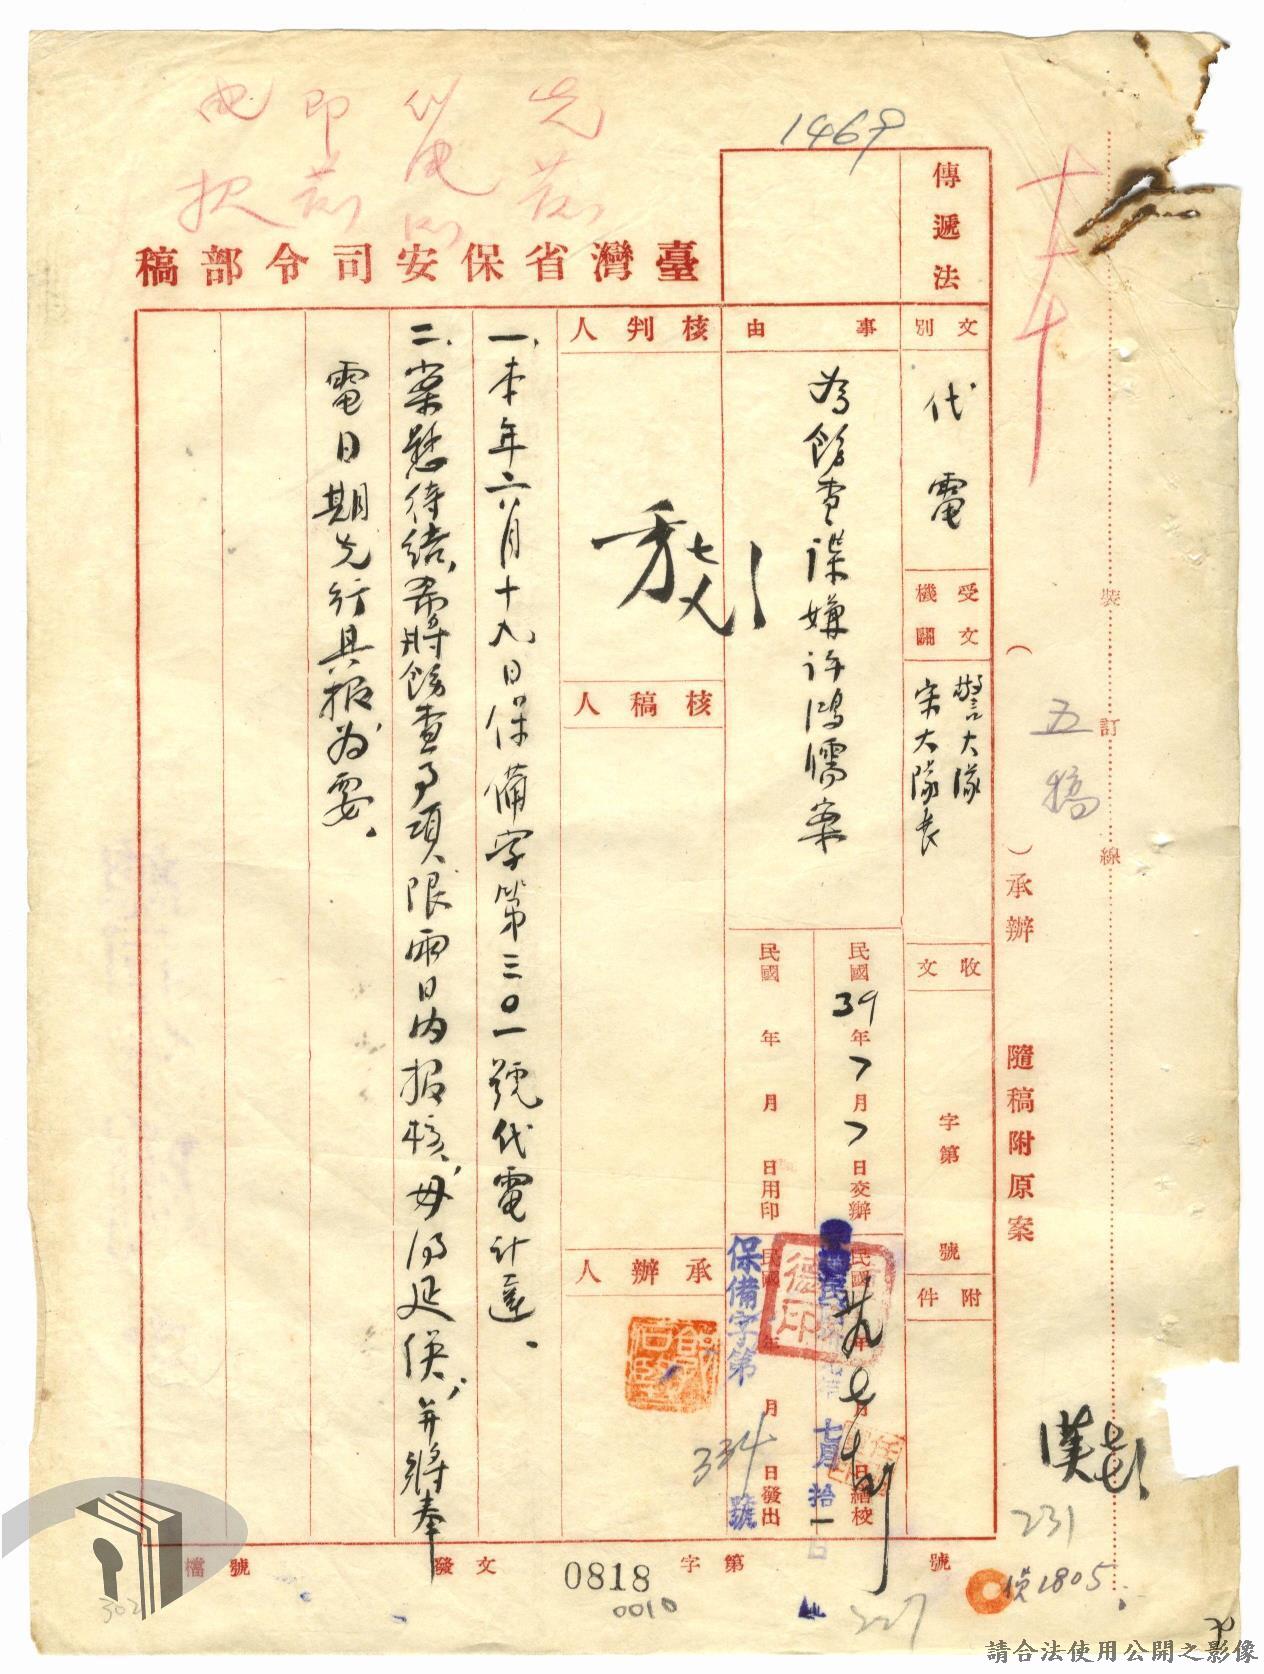 1469
傳遞法
臺灣省保安司令部稿
文別
代電
受文機關
警大隊
宋大隊長
收文
字第 號
附件
事由
為飭查諜嫌許鴻儒案
民國39年7月7日交辦
民國 年 月 日繕校
民國 年 月 日用印
民國 年 月 日發出
七月拾一日
保備字第334號
核判人
核稿人
承辦人
一、本年六月十九日保備字第三〇一號代電計達。
二、案懸待結,希將飭查事項限兩日內報核,毋得延誤,并將奉
電日期先行具報,為要。
裝訂線
五稿
( )承辦
隨稿附原案
231
偵1805
檔號
發文
字第 號
0818
0010
227
302
請合法使用公開之影像